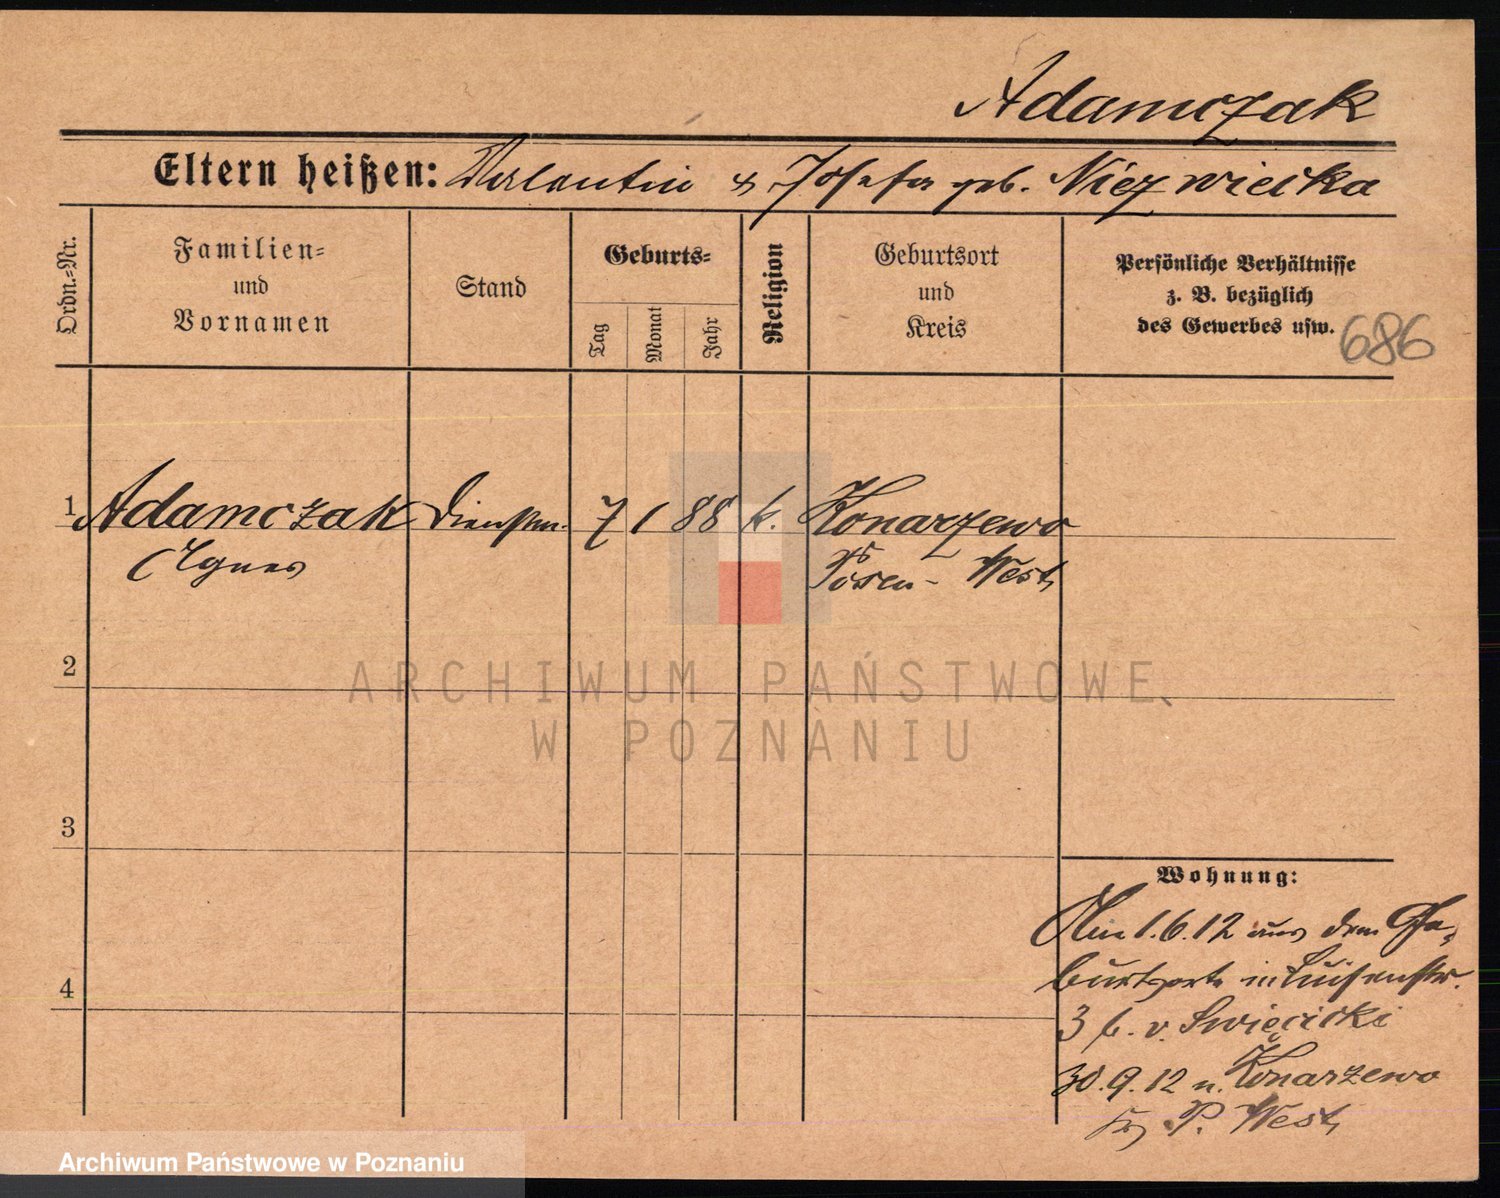 Adamczak
Eltern heißen: Valentin & Josefa geb. Niezwiecka
Ordn.=Nr.
Familien=
und
Vornamen
Stand
Geburts=
Tag
Monat
Jahr
Religion
Geburtsort
und
Kreis
Persönliche Verhältnisse
z. B. bezüglich
des Gewerbes usw.
686
1 Adamczak Dienstm. 7 1 88 k. Konarzewo
Agnes Posen-West
2
3
4
ARCHIWUM PAŃSTWOWE
W POZNANIU
Wohnung:
Am 1.6.12 aus dem Ge-
burtsorte in Luisenstr.
3 b. v. Święcicki
30.9.12 n. Konarzewo
Kr. P. West
Archiwum Państwowe w Poznaniu